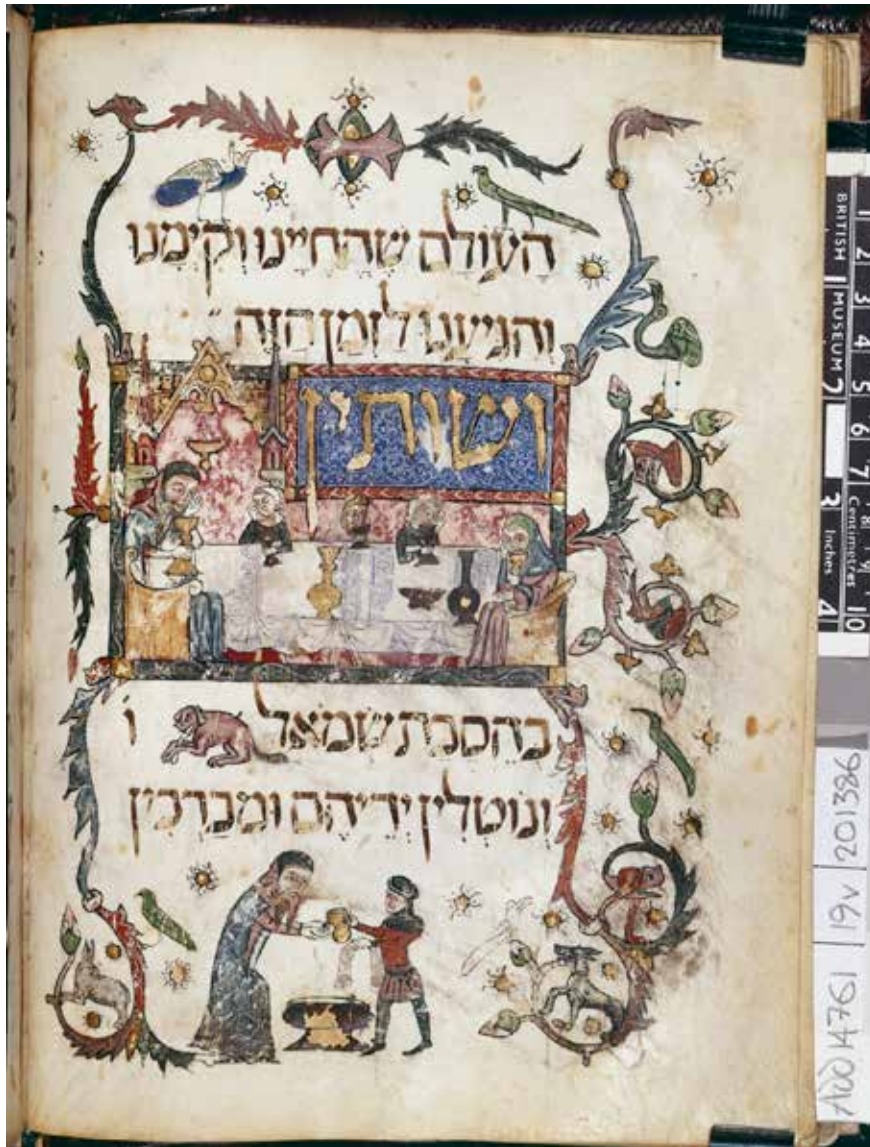 הָעוֹלָם שֶׁהֶחֱיָינוּ וְקִיְּמָנוּ
וְהִגִּיעָנוּ לַזְּמַן הַזֶּה
ושותין
בְּהַסִבַּת שְׂמֹאל וֹ
וְנוֹטְלִין יְדֵיהֶם וּמְבָרְכִין
BRITISH MUSEUM
1 2 3 4 5 6 7 8 9 10
Centimetres
1 2 3 4
Inches
ADD 14761 | 19v | 201386